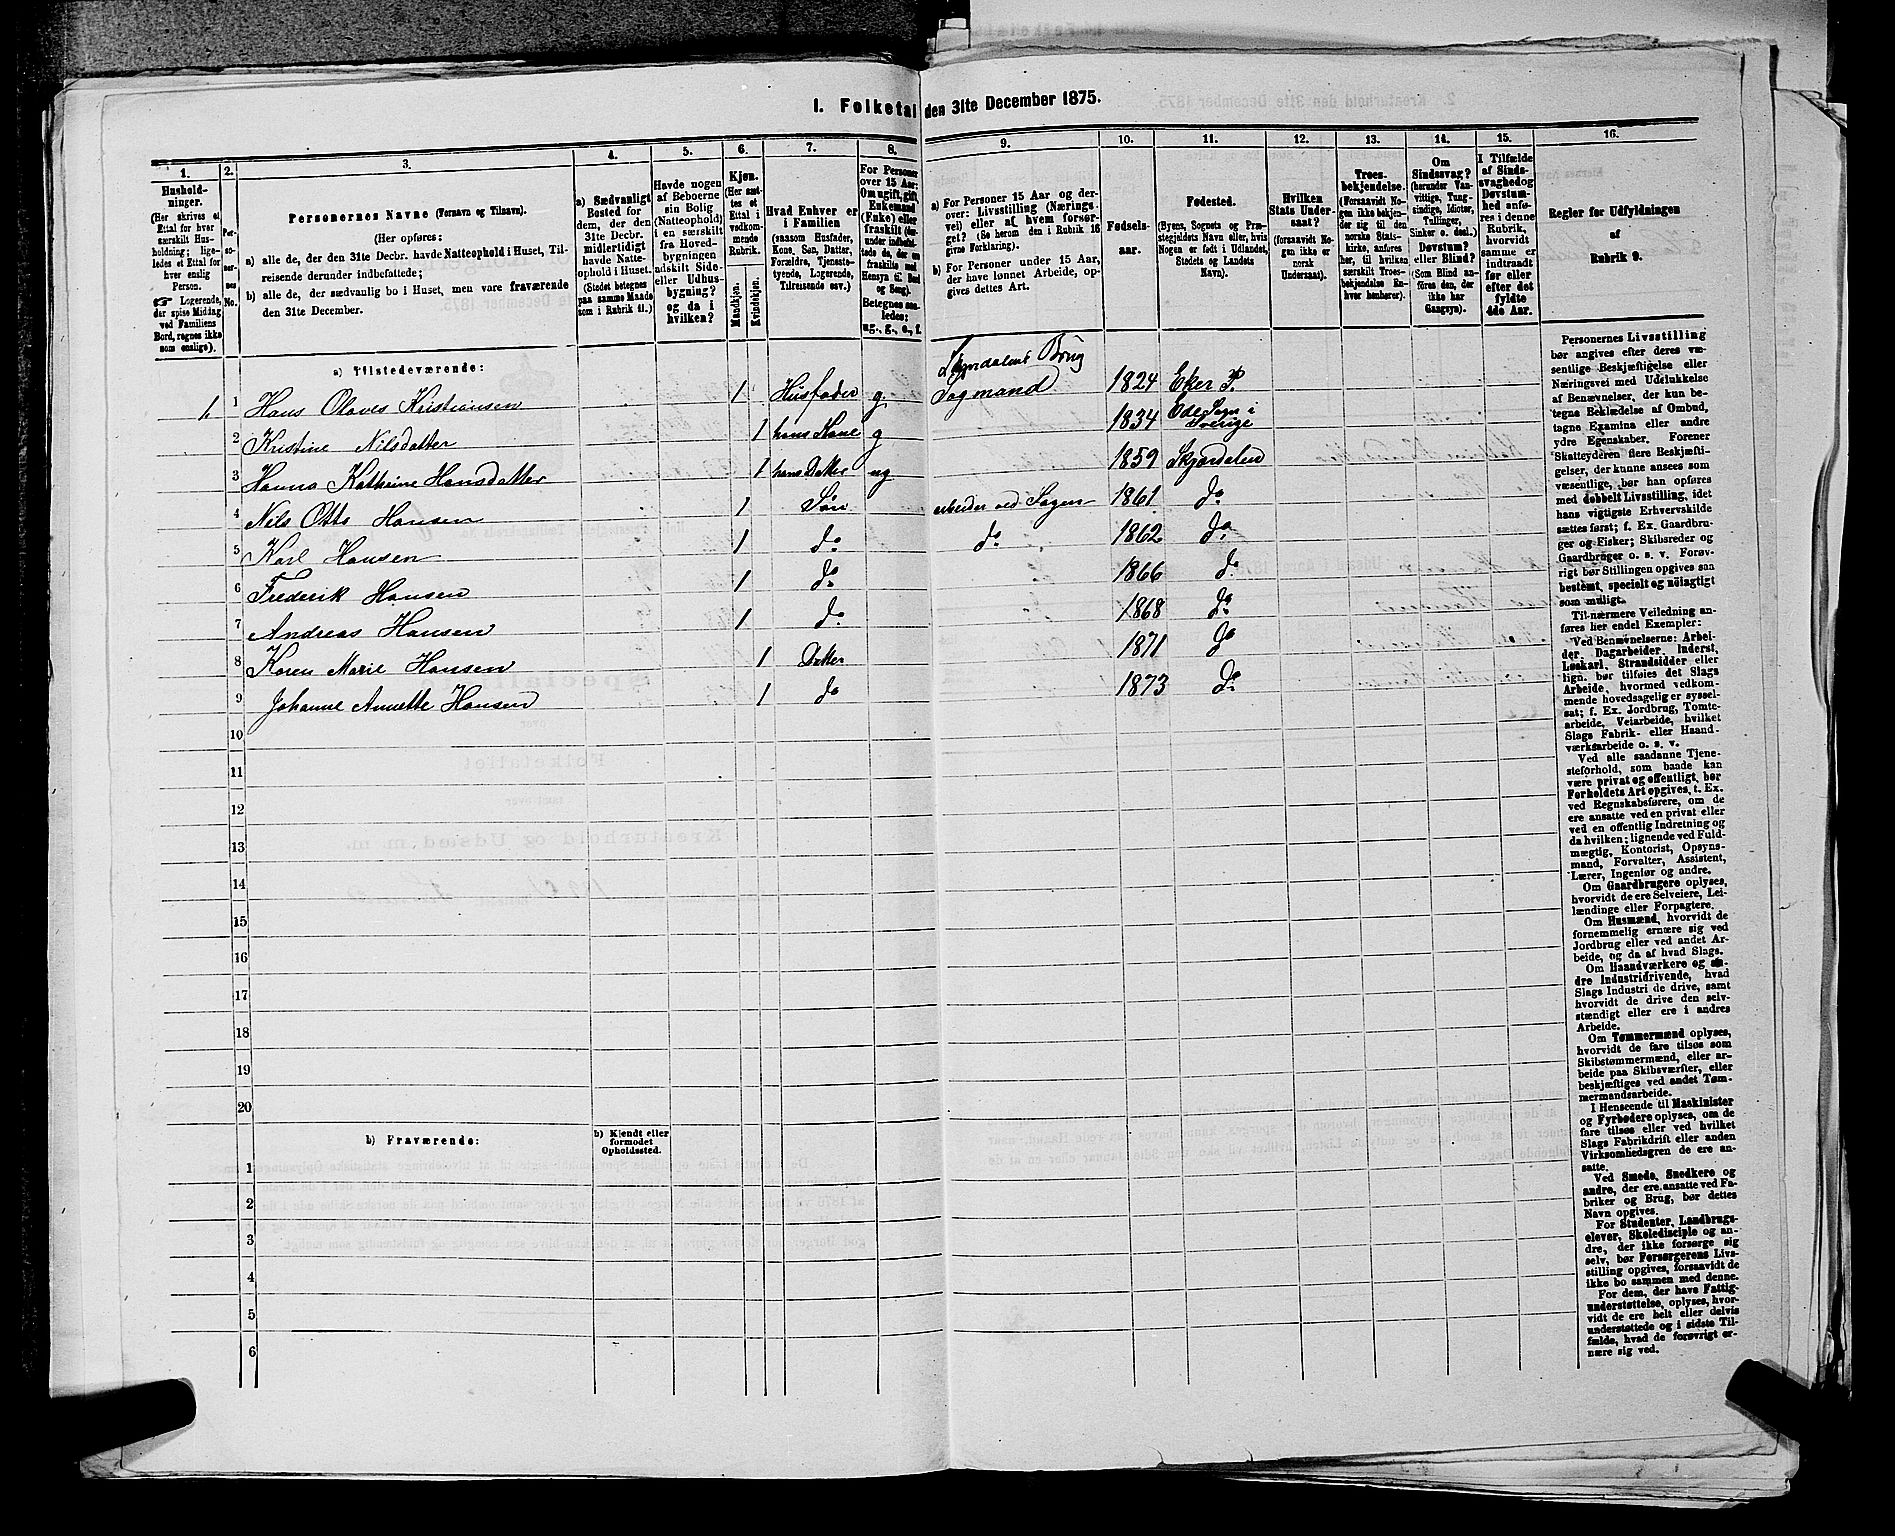 I. Folketal den 31te December 1875.
1. 2. 3. 4. 5. 6. 7. 8. 9. 10. 11. 12. 13. 14. 15. 16.
Hushold-
ninger.
(Her skrives et
Ettal for hver
særskilt Hus-
holdning; lige-
ledes et Ettal for
hver enslig
Person.
☛ Logerende,
der spise Middag
ved Familiens
Bord, regnes ikke
som enslige).
Per-
so-
ner-
nes
No.
Personernes Navne (Fornavn og Tilnavn).
(Her opføres:
a) alle de, der den 31te Decbr. havde Natteophold i Huset, Til-
reisende derunder indbefattede;
b) alle de, der sædvanlig bo i Huset, men vare fraværende
den 31te December.
a) Sædvanligt
Bosted for
dem, der den
31te Decbr.
midlertidigt
havde Natte-
ophold i Huset.
(Stedet betegnes
paa samme Maade
som i Rubrik 11.)
Havde nogen
af Beboerne
sin Bolig
(Natteophold)
i en særskilt
fra Hoved-
bygningen
adskilt Side-
eller Udhus-
bygning?
og da i
hvilken?
Kjøn.
(Her sæt-
tes et
Ettal i
vedkom-
mende
Rubrik.
Mandkjøn.
Kvindekjøn.
Hvad Enhver er
i Familien
(saasom Husfader,
Kone, Søn, Datter,
Forældre, Tjeneste-
tyende, Logerende,
Tilreisende osv.)
For Personer
over 15 Aar:
Om ugift, gift,
Enkemand
(Enke) eller
fraskilt
Betegnes saa-
ledes:
ug., g., e., f.
a) For Personer 15 Aar og der-
over: Livsstilling (Nærings-
vei) eller af hvem forsør-
get? (Se herom den i Rubrik 16
givne Forklaring).
b) For Personer under 15 Aar,
der have lønnet Arbeide, op-
gives dettes Art.
Fødsels-
aar.
Fødested.
(Byens, Sognets og Præ-
stegjeldets Navn eller, hvis
Nogen er født i Udlandet,
Stedets og Landets
Navn).
Hvilken
Stats Under-
saat?
(forsaavidt No-
gen ikke er
norsk
Undersaat).
Troes-
bekjendelse.
(Forsaavidt No-
gen ikke bekjen-
der sig til den
norske Stats-
kirke, anføres
her, til hvilken
særskilt Troes-
bekjendelse En-
hver henhører).
Om
Sindssvag?
(herunder Van-
vittige, Tung-
sindige, Idioter,
Tullinger,
Sinker o. desl.)
Døvstum?
eller Blind?
(Som Blind an-
føres den, der
ikke har
Gangsyn).
I Tilfælde
af Sinds-
svaghed og
Døvstum-
hed anfø-
res i denne
Rubrik,
hvorvidt
samme er
indtraadt
før eller
efter det
fyldte
4de Aar.
Regler for Udfyldningen
af
Rubrik 9.
a) Tilstedeværende:
Brug
1 1 Hans Olaves Kristiansen 1 Husfader g. Sagmand 1824 Eker P.
2 Kristine Nilsdatter 1 hans Kone g 1834 Ede Sogn i Sverige
3 Hanna Kathrine Hansdatter 1 hans Datter ug 1859 Skjordalen
4 Nils Otto Hansen 1 Søn arbeider ved Sagen 1861 do
5 Karl Hansen 1 do do 1862 do
6 Frederik Hansen 1 do 1866 do
7 Andreas Hansen 1 do 1868 do
8 Karen Marie Hansen 1 Datter 1871 do
9 Johanne Annette Hansen 1 do 1873 do
10
11
12
13
14
15
16
17
18
19
20
b) Fraværende:
b) Kjendt eller
formodet
Opholdssted.
1
2
3
4
5
6
Personernes Livsstilling
bør angives efter deres væ-
sentlige Beskjæftigelse eller
Næringsvei med Udelukkelse
af Benævnelser, der kun be-
tegne Beklædelse af Ombud,
tagne Examina eller andre
ydre Egenskaber. Forener
Skatteyderen flere Beskjæfti-
gelser, der kunne ansees som
væsentlige, bør han opføres
med dobbelt Livsstilling, idet
hans vigtigste Erhvervskilde
sættes først; f. Ex. Gaardbru-
ger og Fisker; Skibsreder og
Gaardbruger o. s. v. Forøv-
rigt bør Stillingen opgives saa
bestemt, specielt og nøiagtigt
som muligt.
Til nærmere Veiledning an-
føres her endel Exempler:
Ved Benævnelserne: Arbei-
der, Dagarbeider, Inderst,
Løskarl, Strandsidder eller
lign. bør tilføies det Slags
Arbeide, hvormed vedkom-
mende hovedsagelig er syssel-
sat; f. Ex. Jordbrug, Tomte-
arbeide, Veiarbeide, hvilket
Slags Fabrik- eller Haand-
værksarbeide o. s. v.
Ved alle saadanne Tjene-
steforhold, som baade kan
være privat og offentligt, bør
Forholdets Art opgives, t. Ex.
ved Regnskabsførere, om de
ere ansatte ved en privat eller
ved en offentlig Indretning og
da hvilken; lignende ved Fuld-
mægtig, Kontorist, Opsyns-
mand, Forvalter, Assistent,
Lærer, Ingeniør og andre.
Om Gaardbrugere oplyses,
hvorvidt de ere Selveiere, Lei-
lændinge eller Forpagtere.
Om Husmænd, hvorvidt de
fornemmelig ernære sig ved
Jordbrug eller ved andet Ar-
beide, og da af hvad Slags.
Om Haandværkere og an-
dre Industridrivende, hvad
Slags Industri de drive, samt
hvorvidt de drive den selv-
stændigt eller ere i andres
Arbeide.
Om Tømmermænd oplyses,
hvorvidt de fare tilsøs som
Skibstømmermænd, eller ar-
beide paa Skibsværfter, eller
beskjæftiges ved andet Tøm-
mermandsarbeide.
I Henseende til Maskinister
og Fyrbødere oplyses, om de
fare tilsøs eller ved hvilket
Slags Fabrikdrift eller anden
Virksomhedsgren de ere an-
satte.
Ved Smede, Snedkere og
andre, der ere ansatte ved Fa-
briker og Brug, bør dettes
Navn opgives.
For Studenter, Landbrugs-
elever, Skoledisciple og an-
dre, der ikke forsørge sig
selv, bør Forsørgerens Livs-
stilling opgives, forsaavidt de
ikke bo sammen med denne.
For dem, der have Fattig-
understøttelse, oplyses, hvor-
vidt de ere helt eller delvis
understøttede og i sidste Til-
fælde, hvad de forøvrigt er-
nære sig ved.